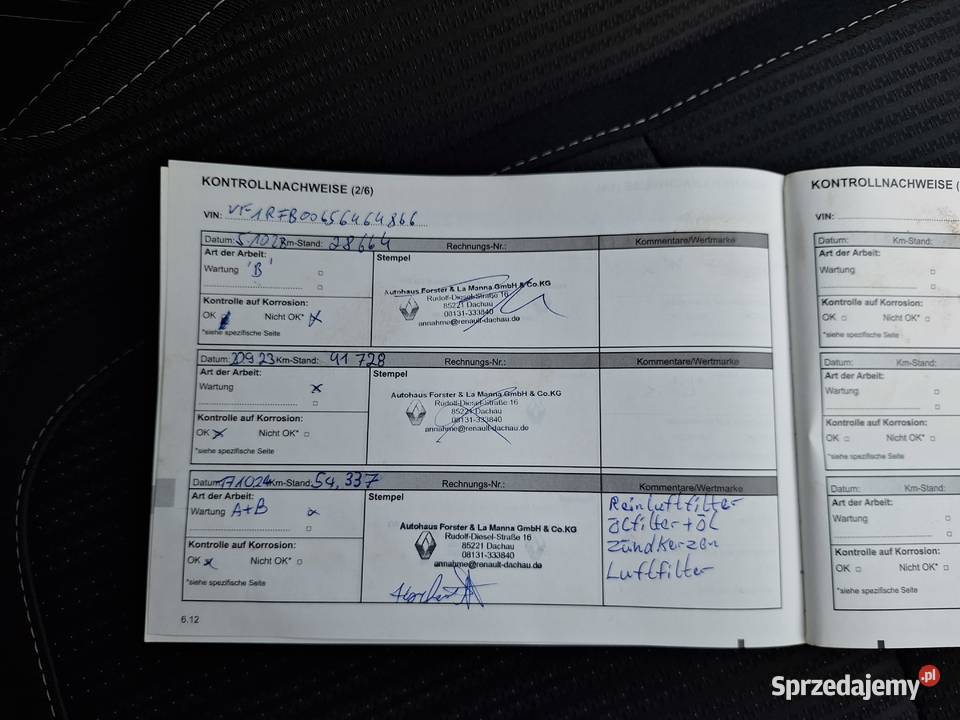 KONTROLLNACHWEISE (2/6)
VIN: VF1RFB00656464866
Datum: 5.10.22 Km-Stand: 28664 Rechnungs-Nr.: Kommentare/Wertmarke
Art der Arbeit: Stempel
Wartung 'B'
Autohaus Forster & La Manna GmbH & Co.KG
Rudolf-Diesel-Straße 16
85221 Dachau
08131-333840
annahme@renault-dachau.de
Kontrolle auf Korrosion:
OK Nicht OK* x
*siehe spezifische Seite
Datum: Km-Stand: 41 728 Rechnungs-Nr.: Kommentare/Wertmarke
Art der Arbeit: Stempel
Wartung x
Autohaus Forster & La Manna GmbH & Co.KG
Rudolf-Diesel-Straße 16
85221 Dachau
08131-333840
annahme@renault-dachau.de
Kontrolle auf Korrosion:
OK x Nicht OK*
*siehe spezifische Seite
Datum: 17.10.24 Km-Stand: 54,337 Rechnungs-Nr.: Kommentare/Wertmarke
Art der Arbeit: Stempel
Wartung A+B x
Autohaus Forster & La Manna GmbH & Co.KG
Rudolf-Diesel-Straße 16
85221 Dachau
08131-333840
annahme@renault-dachau.de
Reinluftfilter
Ölfilter + Öl
Zündkerzen
Luftfilter
Kontrolle auf Korrosion:
OK x Nicht OK*
*siehe spezifische Seite
6.12
KONTROLLNACHWEISE (
VIN:
Datum: Km-Stand:
Art der Arbeit:
Wartung
Kontrolle auf Korrosion:
OK Nicht OK*
*siehe spezifische Seite
Datum: Km-Stand:
Art der Arbeit:
Wartung
Kontrolle auf Korrosion:
OK Nicht OK*
*siehe spezifische Seite
Datum: Km-Stand:
Art der Arbeit:
Wartung
Kontrolle auf Korrosion:
OK Nicht OK*
*siehe spezifische Seite
Sprzedajemy.pl